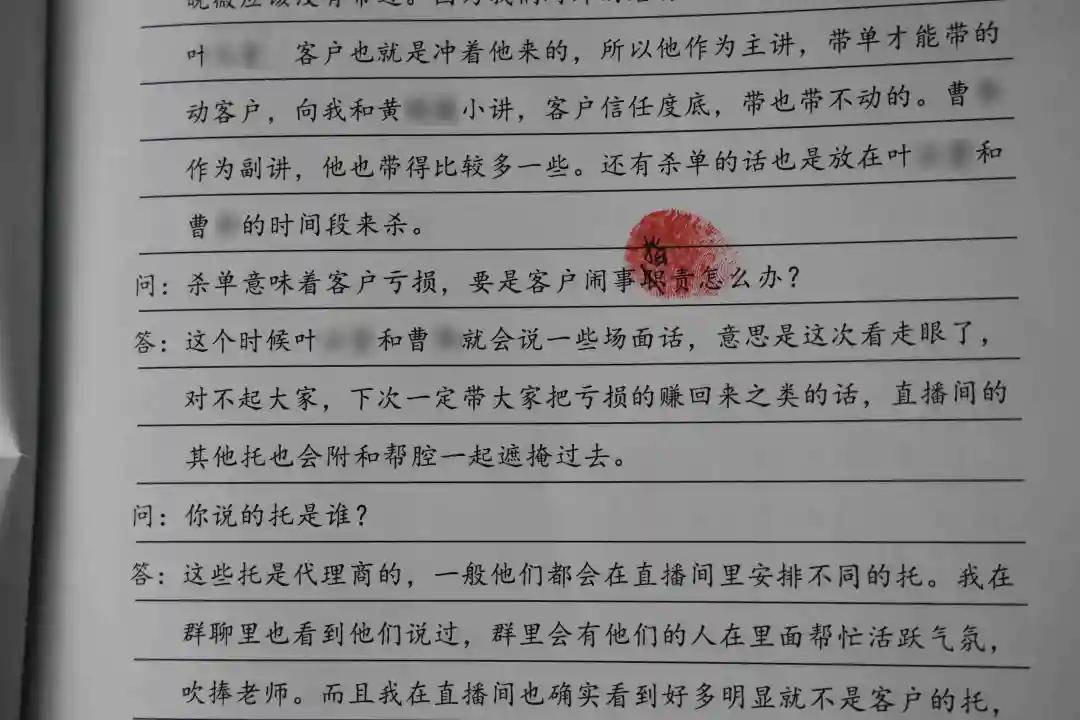 晚微应该没有带过。因为我们对外的活动
叶 客户也就是冲着他来的，所以他作为主讲，带单才能带的
动客户，向我和黄 小讲，客户信任度底，带也带不动的。曹
作为副讲，他也带得比较多一些。还有杀单的话也是放在叶 和
曹 的时间段来杀。
问：杀单意味着客户亏损，要是客户闹事职责怎么办？
答：这个时候叶 和曹 就会说一些场面话，意思是这次看走眼了，
对不起大家，下次一定带大家把亏损的赚回来之类的话，直播间的
其他托也会附和帮腔一起遮掩过去。
问：你说的托是谁？
答：这些托是代理商的，一般他们都会在直播间里安排不同的托。我在
群聊里也看到他们说过，群里会有他们的人在里面帮忙活跃气氛，
吹捧老师。而且我在直播间也确实看到好多明显就不是客户的托，